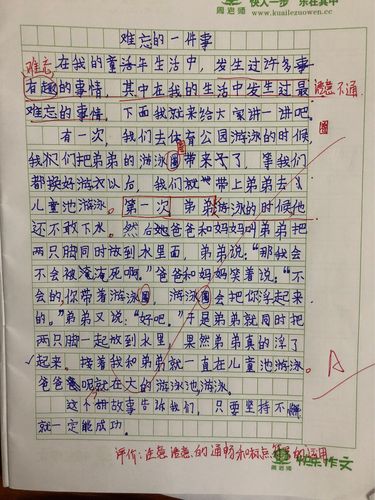 快人一步 乐在其中
周老师
www.kuailezuowen.cc
难忘的一件事
在我的童年生活中，发生过许多事
难忘
有趣的事情，其中在我的生活中发生过最
语意不通
难忘的事情。下面我就来给大家讲一讲吧。
有一次，我们去体育公园游泳的时候，
圈
我们把弟弟的游泳圈带来了，等我们
都换好游衣以后，我们就带上弟弟去
儿童池游泳。第一次弟弟游泳的时候他
还不敢下水。然后爸爸和妈妈叫弟弟把
两只脚同时放到水里面，弟弟说："那我会
不会被淹死啊。"爸爸和妈妈笑着说："不
会的，你带着游泳圈，游泳圈会把你浮起来
的。"弟弟又说："好吧。"于是弟弟就同时把
两只脚一起放到水里，果然弟弟真的浮了
起来。接着我和弟弟就一直在儿童池游泳。
爸爸呢就在大的游泳池游泳。
A
这个故事告诉我们，只要坚持不懈
就一定能成功。
评价：注意语意的通畅和标点符号的运用
周老师 快乐作文